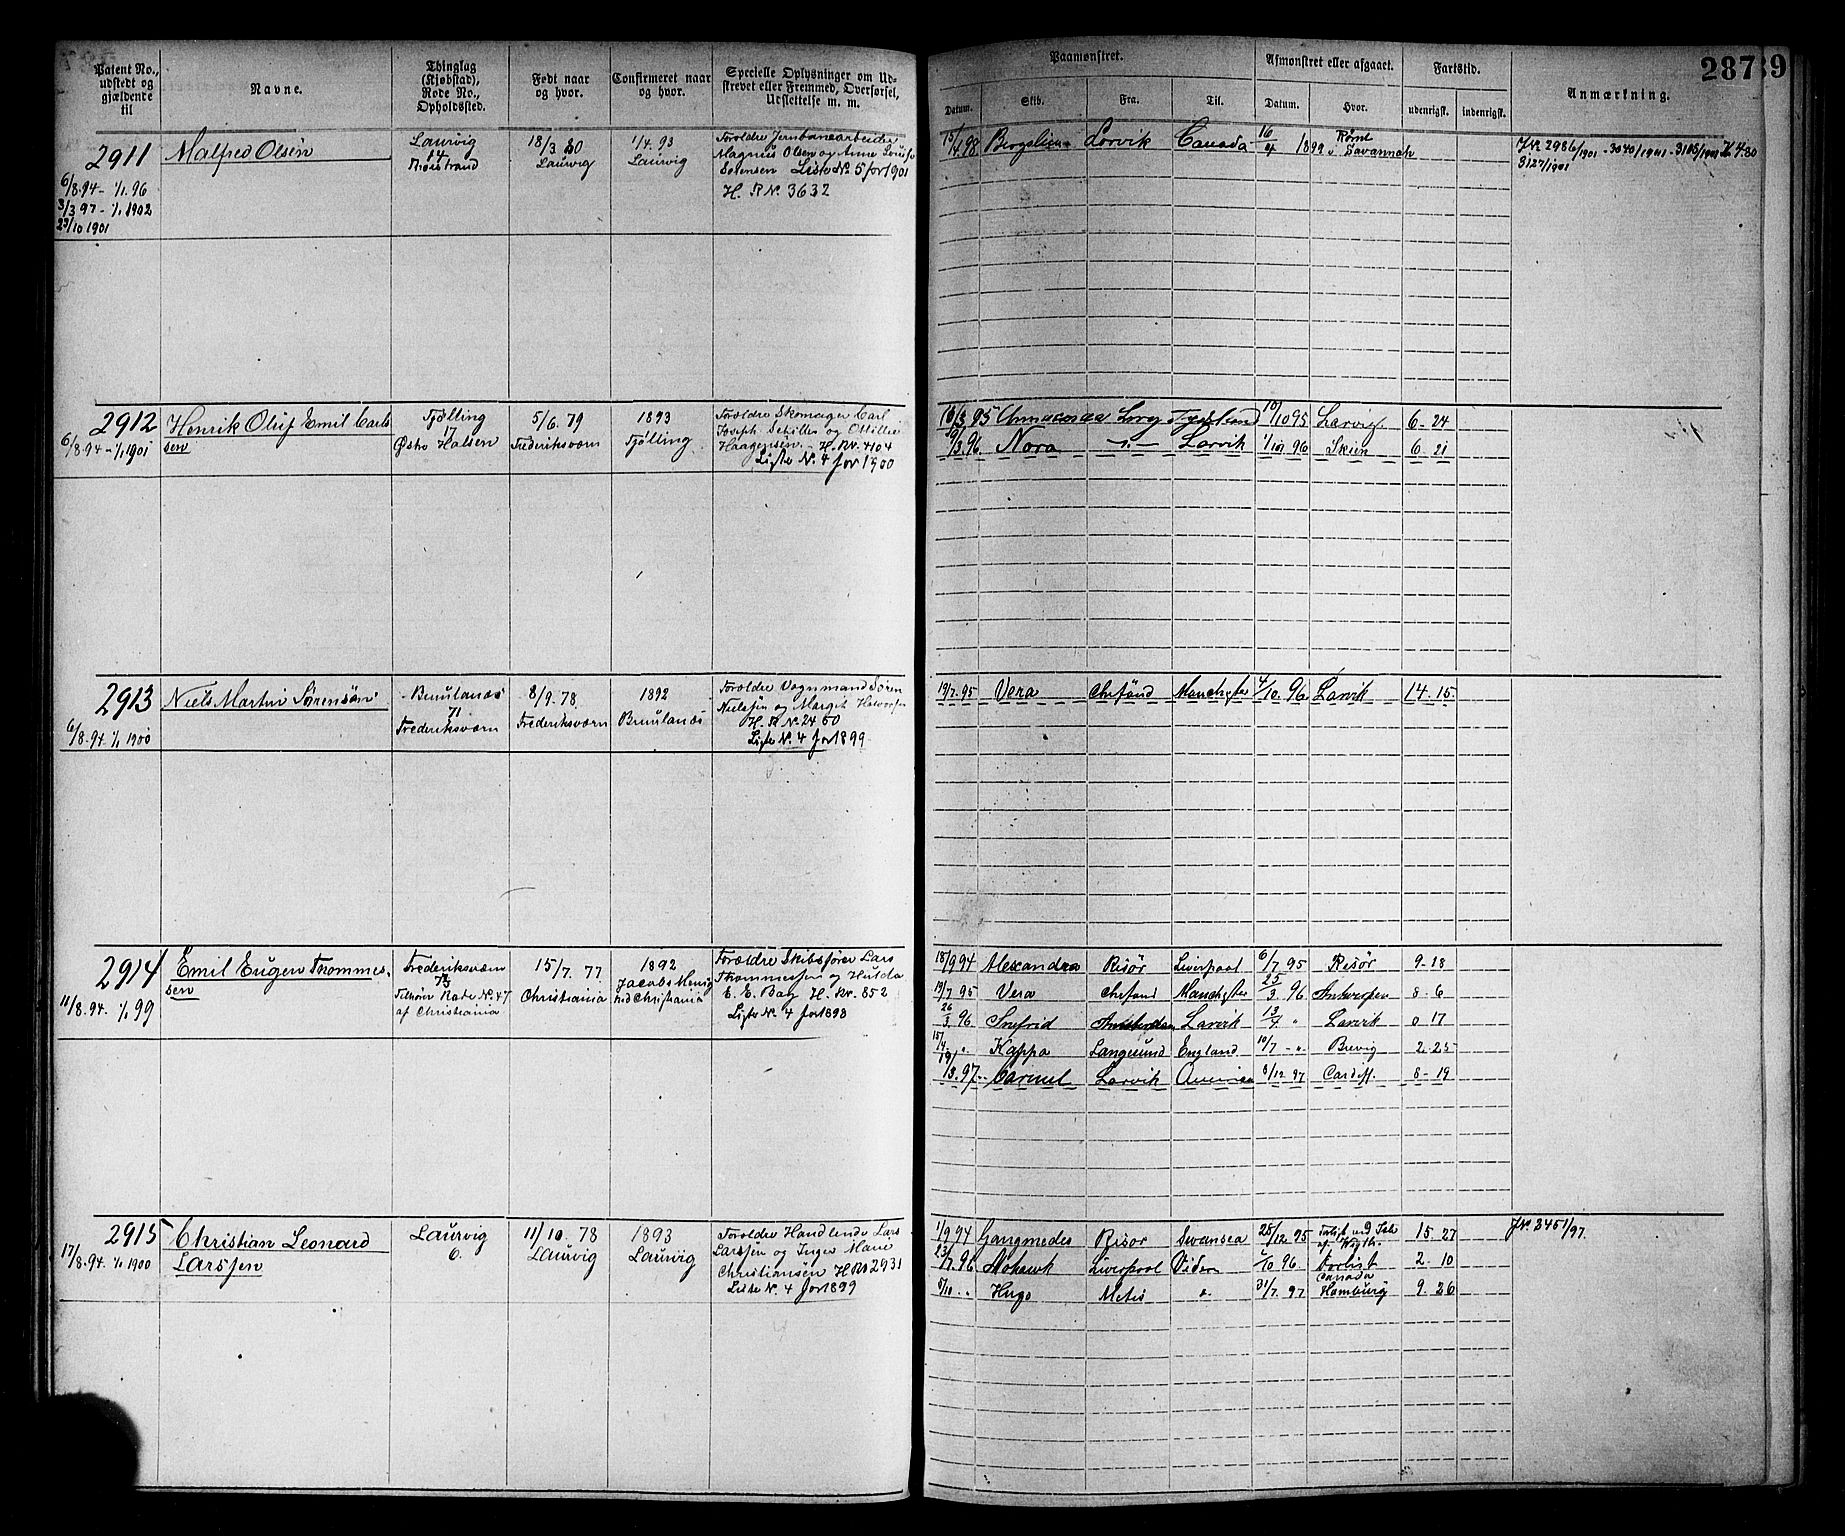 Patent No., udstedt og gjældende til
Navne.
Thinglag (Kjøbstad), Rode No., Opholdssted.
Født naar og hvor.
Confirmeret naar og hvor.
Specielle Oplysninger om Udstrevet eller Fremmed, Overførsel, Udslettelse m. m.
Paamønstret.
Datum. Skib. Fra. Til.
Afmønstret eller afgaaet.
Datum. Hvor.
Fartstid.
udenrigsk. indenrigsk.
Anmærkning.
287
9
2911
6/8.94 - 1/1.96
3/3 97 - 1/1 1902
23/10 1901
Malfred Olsen
Laurvig
14
18/3 80
Laurvig
1/4. 93
Laurvig
Forældre Jernbanearbeider
Magnus Olsen og Anne Louise
Sørensen Liste No. 5 for 1901
H. R No. 3632
15/4 98 Bergslien Larvik Canada 16/4 1899 Rømt Savannah
JNo. 2986/1901 - 3040/1901 - 3105/1901
3127/1901
2912
6/8.94 - 1/1 1901
Henrik Oluf Emil Carlssen
Tjølling
17
Østre Halsen
5/6. 79
Frederiksværn
1893
Tjølling
Forældre Skomager Carl
Joseph og Ottillie
Haagensen. H. R Nr. 4104
Liste No. 4 for 1900
10/3 95 Larvig Tydskland 10/10 95 Larvig 6 - 24
19/3. 96 Nora -"- Larvik 1/10 96 Skien 6 21
2913
6/8.94. 1/1 1900
Niels Martin Sørensen
Brunlanæs
71
Frederiksværn
8/9. 78.
Frederiksværn
1892
Brunlanæs
Forældre Vognmand Søren
Nielssen og Margit Halvorsen
H. R No. 2460
Liste No. 4 for 1899
19/7. 95 Vera Chrsand Manchester 4/10. 96 Larvik 14. 15
2914
11/8.94. 1/1 99
Emil Eugen Thommessen
Frederiksværn
73
Tilhører Rode No. 47
af Christiania
15/7. 77
Christiania
1892
Jacobs Menig
hed Christiania
Forældre Skibsfører Lars
Thommessen og Hulda
E. E. Bay H. R Nr. 852
Liste No. 4 for 1898
18/9 94 Alexandra Risør Liverpool 6/7. 95 Risør 9. 18
19/7 95 Vera Chrsand Manchester 25/3. 96 Antwerpen 8. 6
26/3. 96 Snefrid Amsterdam Larvik 13/4 " Larvik 0 17
15/4. " Kappa Langesund England 10/7 - " Brevig 2. 25
19/3. 97 Carmel Larvik America 8/12 97 Cardiff. 8 - 19
2915
17/8.94. 1/1 1900
Christian Leonard
Larssen
Laurvig
6.
11/10. 78
Laurvig
1893
Laurvig
Forældre Handlende Lars
Larssen og Inger Marie
Christiansen H. R No 2931
Liste No. 4 for 1899
1/9 94 Ganymedes Risør Swansea 25/12. 95 15. 27
23/7. 96 Mohawk Liverpool 7/10 96 2. 10
8/10 " Hugo Metis " 31/7. 97 Canada Hamburg 9. 26
JNr. 3451/97.